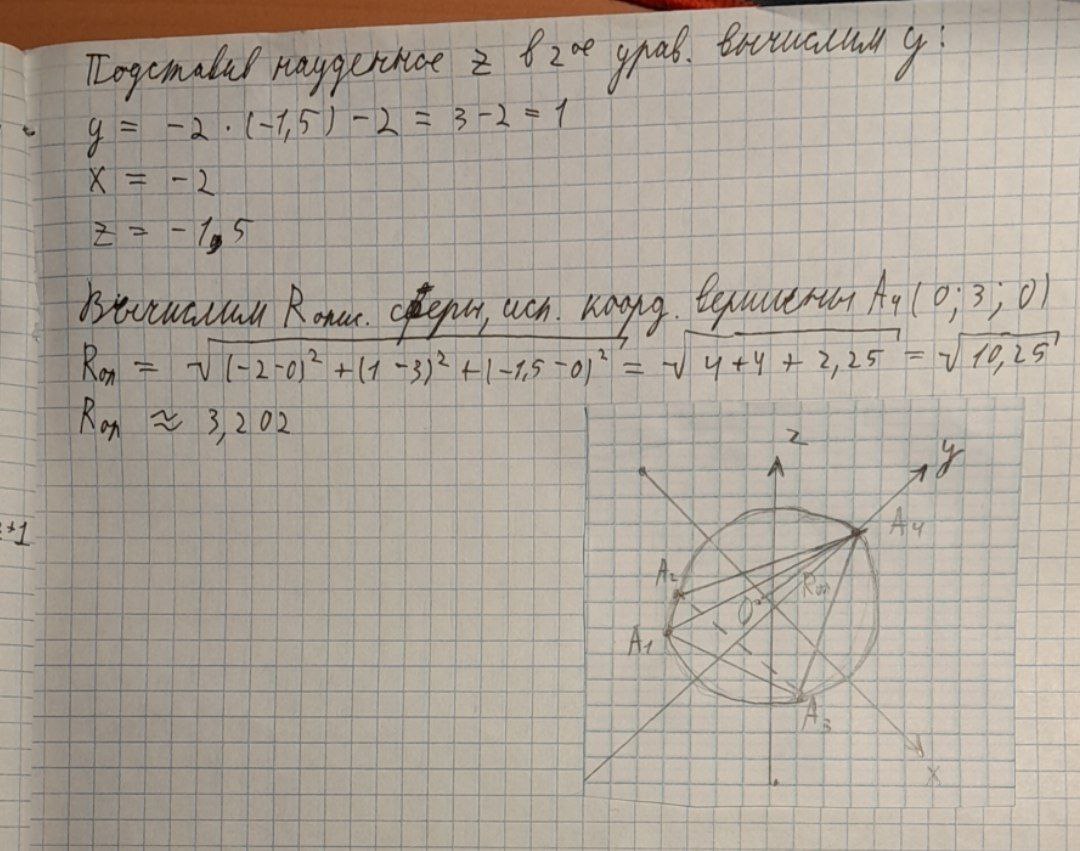 Подставив найденное z в 2ое урав. вычислим y:
y = -2 · (-1,5) - 2 = 3 - 2 = 1
x = -2
z = -1,5
Вычислим Rопис. сферы, исп. коорд. вершины A4 (0; 3; 0)
Rоп = √((-2-0)² + (1-3)² + (-1,5-0)²) = √(4+4+2,25) = √10,25
Rоп ≈ 3,202
z
y
A4
A2
O
Rоп
A1
A3
x
+1